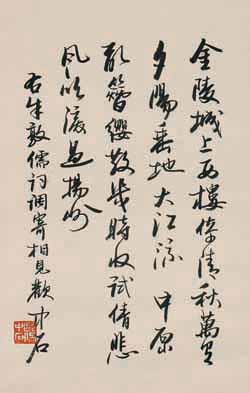 金陵城上西樓倚清秋萬里
夕陽垂地大江流 中原
亂簪纓散幾時收試倩悲
風吹淚過揚州
右朱敦儒詞調寄相見歡 中石